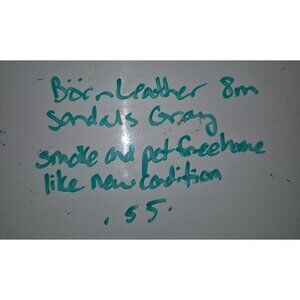 Börn Leather 8m
Sandals Gray
smoke and pet free home
like new condition
.55.